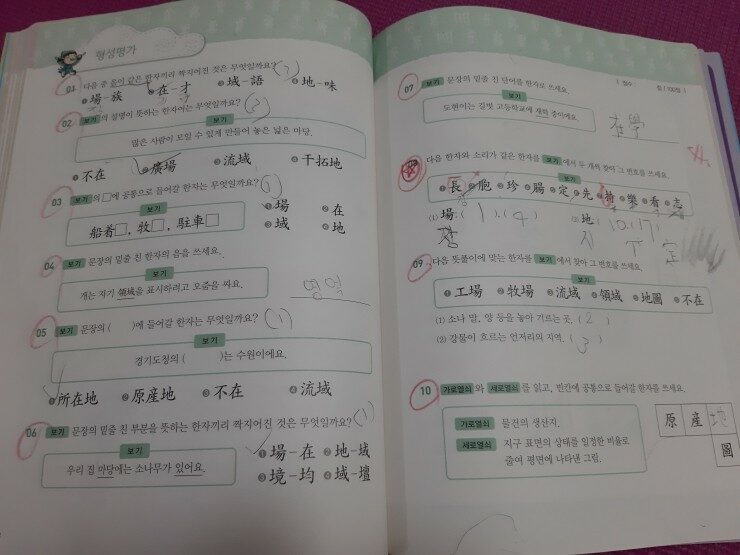 형성평가
01 다음 중 음이 같은 한자끼리 짝지어진 것은 무엇일까요? (2)
❶ 場-族 ❷ 在-才 ❸ 域-語 ❹ 地-味
02 보기의 설명이 뜻하는 한자어는 무엇일까요? (2)
보기
많은 사람이 모일 수 있게 만들어 놓은 넓은 마당.
❶ 不在 ❷ 廣場 ❸ 流域 ❹ 干拓地
03 보기의 □에 공통으로 들어갈 한자는 무엇일까요? (1)
보기
船着□, 牧□, 駐車□
❶ 場 ❷ 在
❸ 域 ❹ 地
04 보기 문장의 밑줄 친 한자의 음을 쓰세요.
보기
개는 자기 領域을 표시하려고 오줌을 싸요.
영역
05 보기 문장의 ( )에 들어갈 한자는 무엇일까요? (1)
보기
경기도청의 ( )는 수원이에요.
❶ 所在地 ❷ 原産地 ❸ 不在 ❹ 流域
06 보기 문장의 밑줄 친 부분을 뜻하는 한자끼리 짝지어진 것은 무엇일까요? (1)
보기
우리 집 마당에는 소나무가 있어요.
❶ 場-在 ❷ 地-域
❸ 境-均 ❹ 域-壇
점수 점/100점
07 보기 문장의 밑줄 친 단어를 한자로 쓰세요.
보기
도현이는 길벗 고등학교에 재학 중이에요.
在學
다음 한자와 소리가 같은 한자를 보기에서 두 개씩 찾아 그 번호를 쓰세요.
보기
❶ 長 ❷ 胞 ❸ 珍 ❹ 腸 ❺ 定 ❻ 先 ❼ 持 ❽ 樂 ❾ 看 ❿ 志
(1) 場: ( 1, 4 ) (2) 地: ( 10, 7 )
장 지
09 다음 뜻풀이에 맞는 한자를 보기에서 찾아 그 번호를 쓰세요.
보기
❶ 工場 ❷ 牧場 ❸ 流域 ❹ 領域 ❺ 地圖 ❻ 不在
(1) 소나 말, 양 등을 놓아 기르는 곳. ( 2 )
(2) 강물이 흐르는 언저리의 지역. ( 3 )
10 가로열쇠 와 세로열쇠 를 읽고, 빈칸에 공통으로 들어갈 한자를 쓰세요.
가로열쇠 물건의 생산지.
세로열쇠 지구 표면의 상태를 일정한 비율로
줄여 평면에 나타낸 그림.
原 産 地
圖